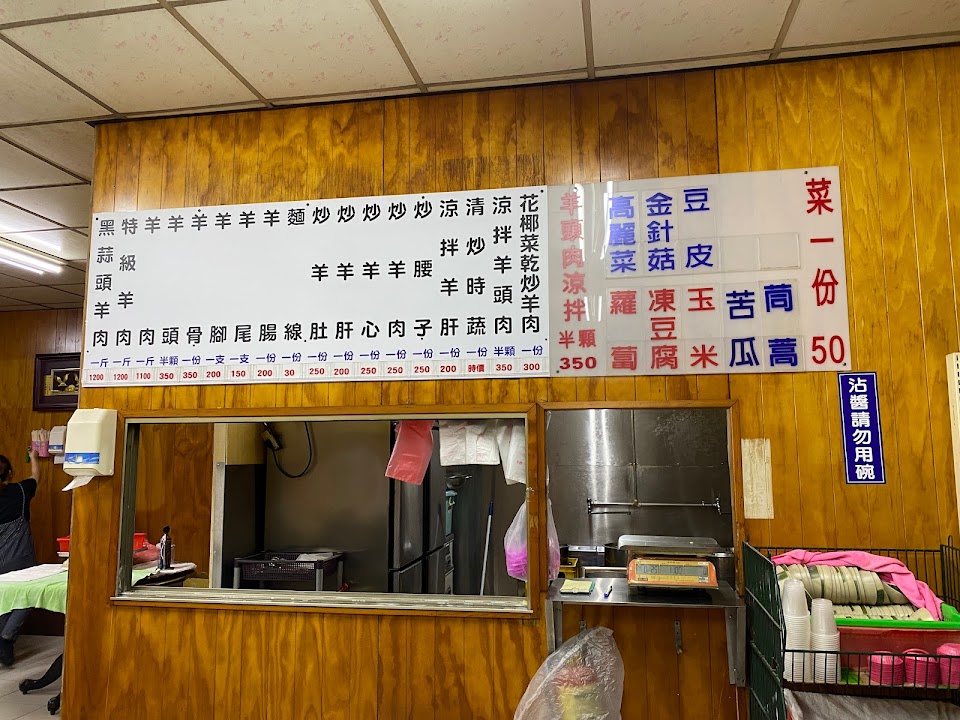 黑蒜頭羊肉 一斤 1200
特級羊肉 一斤 1200
羊肉 一斤 1100
羊頭 半顆 350
羊骨 一份 350
羊腳 一支 200
羊尾 一支 150
羊腸 一份 200
麵線 一份 30
炒羊肚 一份 250
炒羊肝 一份 200
炒羊心 一份 250
炒羊肉 一份 200
炒腰子 一份 250
涼拌羊肝 一份 200
清炒時蔬 一份 時價
涼拌羊頭肉 半顆 350
花椰菜乾炒羊肉 一份 300
羊頭肉涼拌 半顆 350
高麗菜
金針菇
豆皮
蘿蔔
凍豆腐
玉米
苦瓜
茼蒿
菜一份50
沾醬請勿用碗